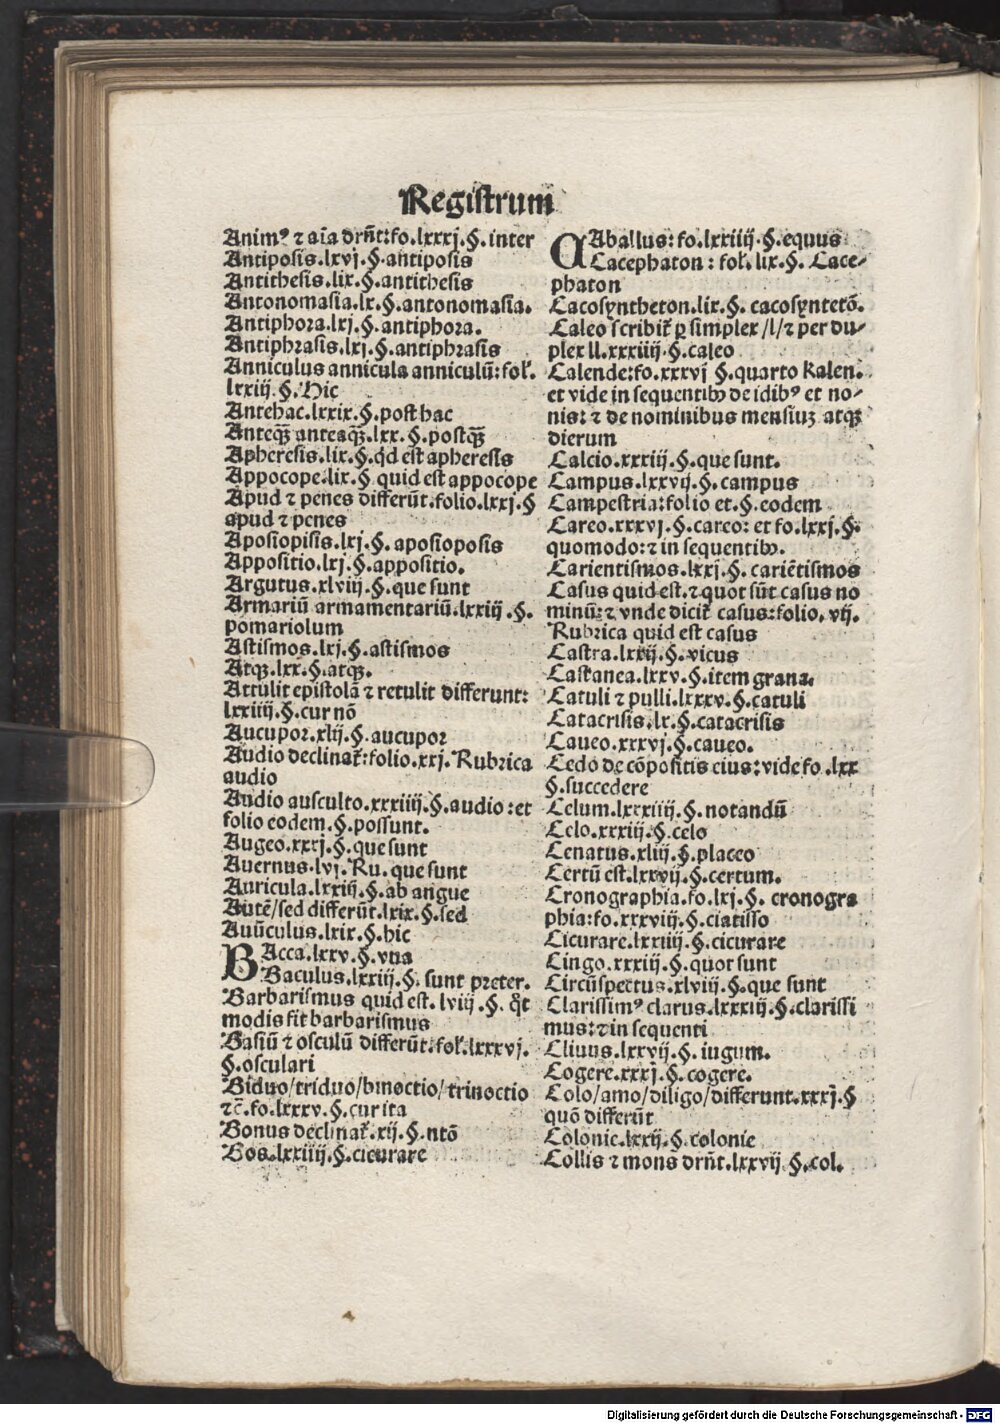 Registrum
Animꝰ ⁊ aīa drn̄t: fo. lxxxj. §. inter
Antiposis. lxvj. §. antiposis
Antithesis. lix. §. antithesis
Antonomasia. lx. §. antonomasia.
Antiphora. lxj. §. antiphora.
Antiphrasis. lxj. §. antiphrasis
Anniculus annicula anniculū: fol̕.
lxxiij. §. Hic
Antehac. lxxix. §. post hac
Anteqꝫ̄ anteaqꝫ̄. lxx. §. postqꝫ̄
Apheresis. lix. §. qd est apheresis
Appocope. lix. §. quid est appocope
Apud ⁊ penes differūt. folio. lxxj. §
apud ⁊ penes
Aposiopisis. lxj. §. aposioposis
Appositio. lxj. §. appositio.
Argutus. xlviij. §. que sunt
Armariū armamentariū. lxxiij. §.
pomariolum
Astismos. lxj. §. astismos
Atqꝫ. lxx. §. atqꝫ.
Attulit epistolā ⁊ retulit differunt:
lxxiiij. §. cur nō
Aucupor. xlij. §. aucupor
Audio declinat̕: folio. xxj. Rubrica
audio
Audio ausculto. xxxiiij. §. audio: et
folio eodem. §. possunt.
Augeo. xxxj. §. que sunt
Auernus. lvj. Ru. que sunt
Auricula. lxxiij. §. ab angue
Autē/sed differūt. lxix. §. sed
Auūculus. lxix. §. hic
BAcca. lxxv. §. vna
Baculus. lxxiij. §. sunt preter.
Barbarismus quid est. lviij. §. q̄t
modis fit barbarismus
Basiū ⁊ osculū differūt. fol̕. lxxxvj.
§. osculari
Biduo/triduo/binoctio/trinoctio
⁊c̄. fo. lxxxv. §. cur ita
Bonus declinat̕. xij. §. ntō
Bos. lxxiiij. §. cicurare
CAballus: fo. lxxiiij. §. equus
Cacephaton: fol̕. lix. §. Cace⸗
phaton
Cacosyntheton. lix. §. cacosyntetō.
Caleo scribit̕ ꝑ simplex /l/ ⁊ per du⸗
plex ll. xxxiiij. §. caleo
Calende: fo. xxxvj §. quarto kalen.
et vide in sequentibꝰ de idibꝰ et no⸗
nis: ⁊ de nominibus mensiuꝫ atqꝫ
dierum
Calcio. xxxiij. §. que sunt.
Campus. lxxvij. §. campus
Campestria: folio et. §. eodem
Careo. xxxvj. §. careo: et fo. lxxj. §.
quomodo: ⁊ in sequentibꝰ.
Carientismos. lxxj. §. cariētismos
Casus quid est. ⁊ quot sūt casus no
minū: ⁊ vnde dicit̕ casus: folio. vij.
Rubrica quid est casus
Castra. lxxij. §. vicus
Castanea. lxxv. §. item grana.
Catuli ⁊ pulli. lxxxv. §. catuli
Catacrisis. lx. §. catacrisis
Caueo. xxxvj. §. caueo.
Cedo de cōpositis eius: vide fo. lxx
§. succedere
Celum. lxxxiiij. §. notandū
Celo. xxxiij. §. celo
Cenatus. xliij. §. placeo
Certū est. lxxvij. §. certum.
Cronographia. fo. lxj. §. cronogra
phia: fo. xxxviij. §. ciatisso
Cicurare. lxxiiij. §. cicurare
Cingo. xxxiij. §. quot sunt
Circūspectus. xlviij. §. que sunt
Clarissimꝰ clarus. lxxxiij. §. clarissi
mus: ⁊ in sequenti
Cliuus. lxxvij. §. iugum.
Cogere. xxxj. §. cogere.
Colo/amo/diligo/differunt. xxxj. §
quō differūt
Colonie. lxxij. §. colonie
Collis ⁊ mons drn̄t. lxxvij. §. col.
Digitalisierung gefördert durch die Deutsche Forschungsgemeinschaft - DFG